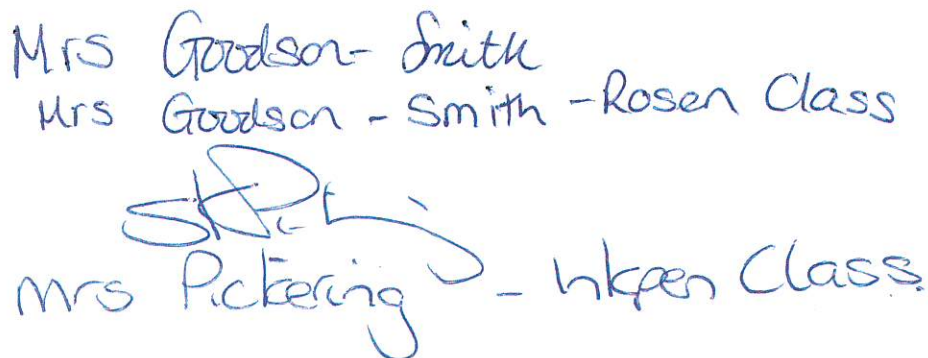 Mrs Goodson- Smith
Mrs Goodson - Smith - Rosen Class
Mrs Pickering - Inkpen Class.